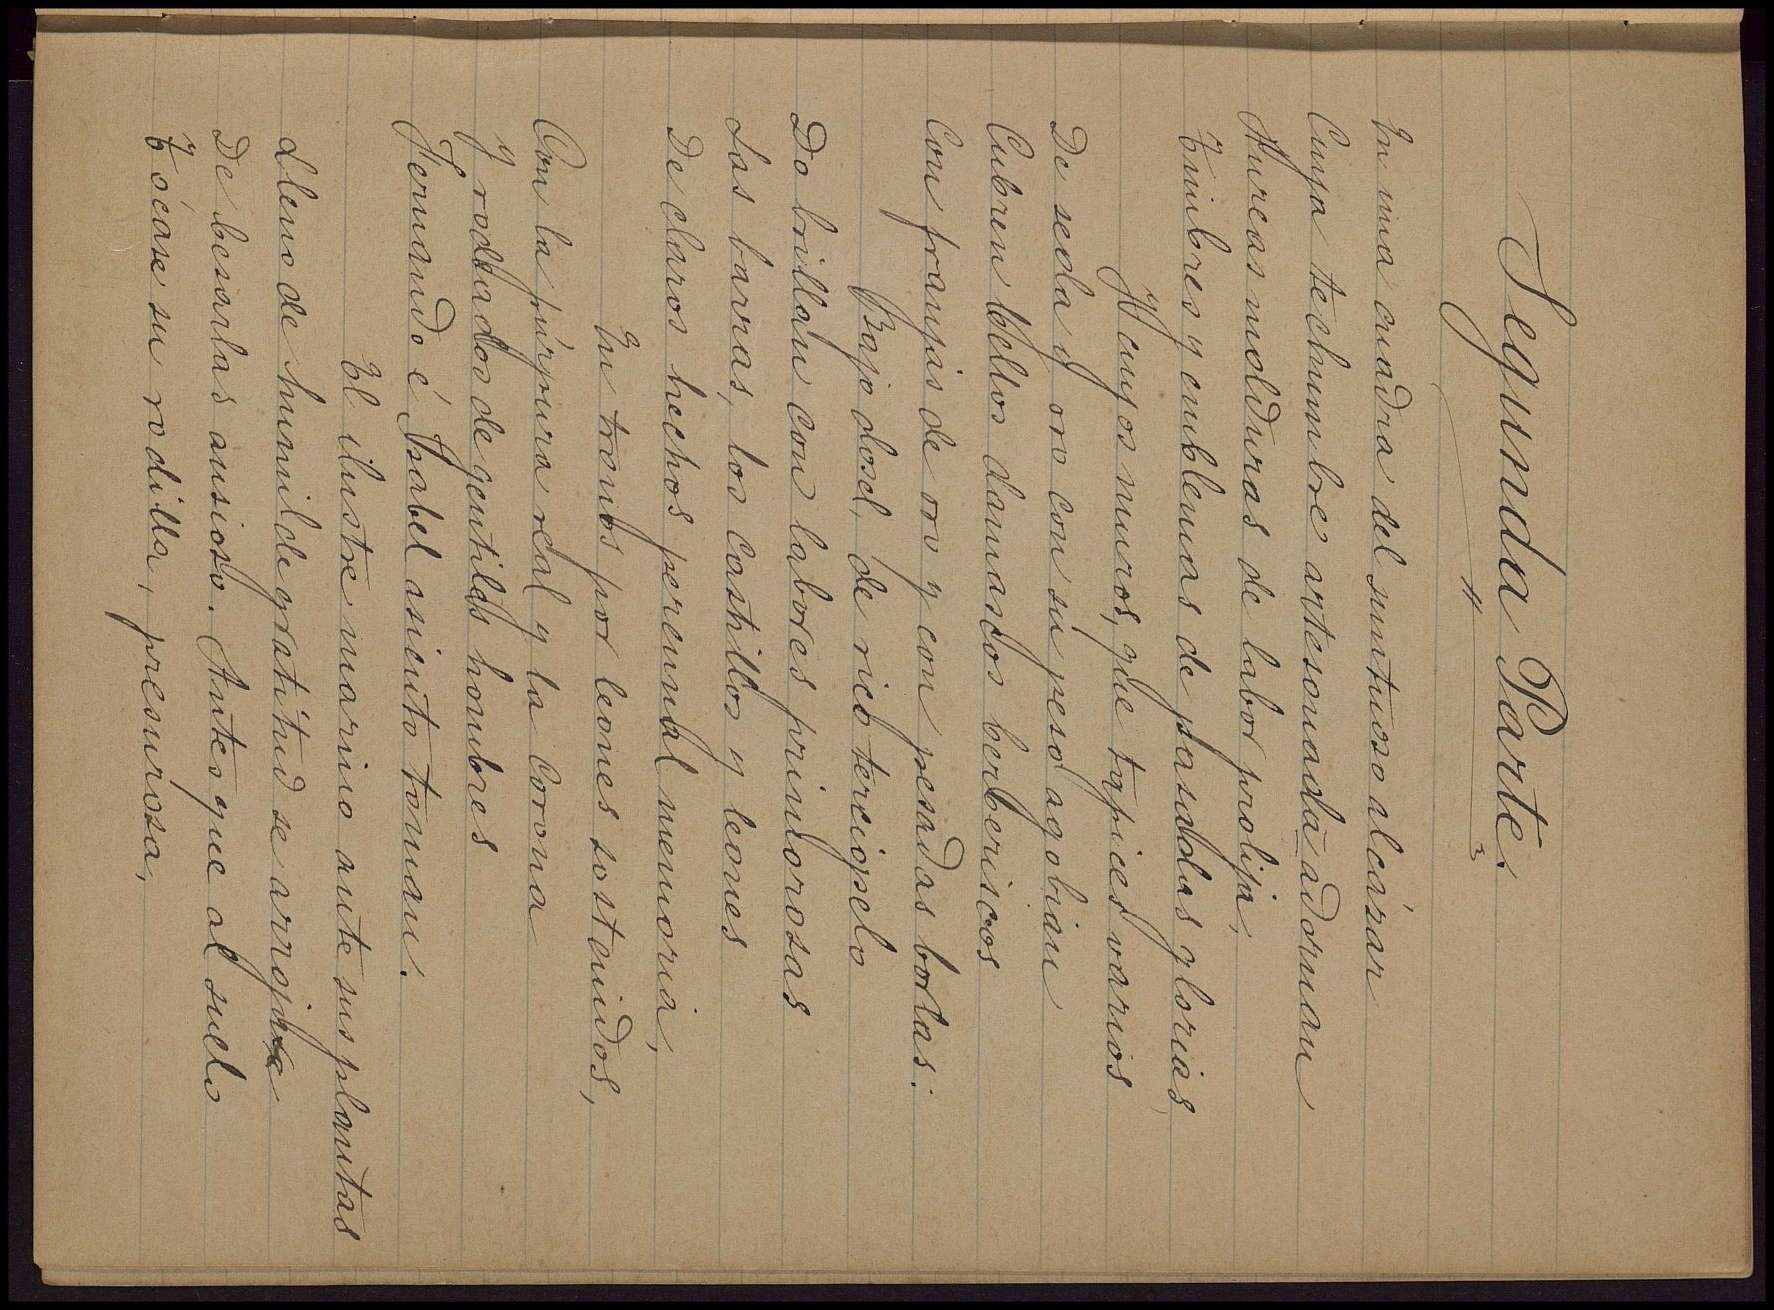 Segunda Parte.
En una cuadra del suntuoso alcázar
Cuya techumbre artesonada adornan
Aureas molduras de labor prolija,
Timbres y emblemas de pasadas glorias,
Y cuyos muros, que tapices varios
De seda y oro con su peso agobian
Cubren bellos damascos berberiscos
Con franjas de oro y con pesadas borlas:
Bajo dosel, de rico terciopelo
Do brillan con labores primorosas
Las barras, los castillos y leones
De claros hechos perennal memoria,
En tronos por leones sostenidos,
Con la púrpura real y la corona
y rodeados de gentiles hombres
Fernando é Isabel asiento toman.
El ilustre marino ante sus plantas
Lleno de humilde gratitud se arroja
De besarlas ansioso. Antes que al suelo
Tócase su rodilla, presurosa,